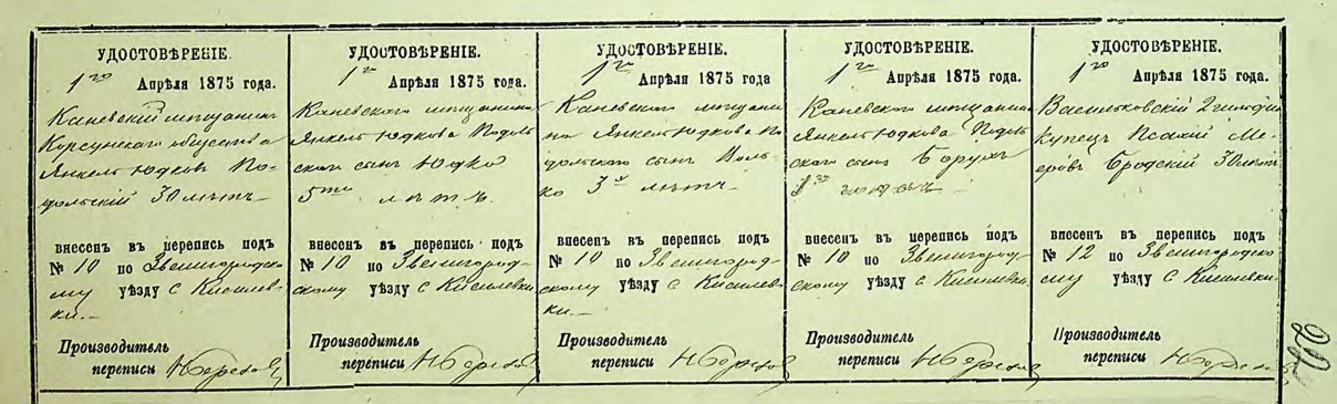 УДОСТОВѢРЕНІЕ.
1го Апрѣля 1875 года.
Каневскій мещанинъ
Корсунскаго общества
Янкель Юдковъ По-
дольскій 30 лѣтъ
внесенъ въ перепись подъ
№ 10 по Звенигородско
му уѣзду с Кисилев-
ки.
Производитель
переписи
УДОСТОВѢРЕНІЕ.
1го Апрѣля 1875 года.
Каневскаго мещанина
Янкеля Юдкова Подоль
скаго сынъ Юдко
5ти лѣтъ.
внесенъ въ перепись подъ
№ 10 по Звенигород-
скому уѣзду с Кисилевки
Производитель
переписи
УДОСТОВѢРЕНІЕ.
1го Апрѣля 1875 года
Каневскаго мещани
на Янкеля Юдкова По
дольскаго сынъ Воль-
ко 3х лѣтъ
внесенъ въ перепись подъ
№ 10 по Звенигород-
скому уѣзду с Кисилев-
ки.
Производитель
переписи
УДОСТОВѢРЕНІЕ.
1го Апрѣля 1875 года.
Каневскаго мещанина
Янкеля Юдкова Подоль
скаго сынъ Борухъ
1го
внесенъ въ перепись подъ
№ 10 по Звенигород-
скому уѣзду с Кисилевки.
Производитель
переписи
УДОСТОВѢРЕНІЕ.
1го Апрѣля 1875 года.
Васильковскій 2 гильдіи
купецъ Исакій Ме-
еровъ Бродскій 30 лѣтъ
внесенъ въ перепись подъ
№ 12 по Звенигородско
му уѣзду с Кисилевки
Производитель
переписи